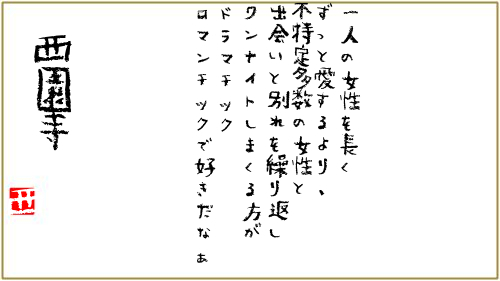 一人の女性を長く
ずっと愛するより、
不特定多数の女性と
出会いと別れを繰り返し
ワンナイトしまくる方が
ドラマチック
ロマンチックで好きだなぁ
西園寺